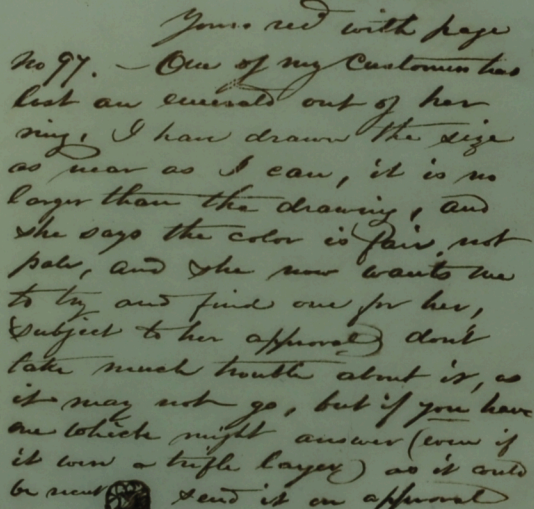 Yours recd with page
No 97. - One of my Customers has
lost an emerald out of her
ring, I have drawn the size
as near as I can, it is no
larger than the drawing, and
she says the color is fair, not
pale, and she now wants me
to try and find one for her,
(subject to her approval) don't
take much trouble about it, as
it may not go, but if you have
one which might answer (even if
it were a trifle larger) as it could
be send it on approval